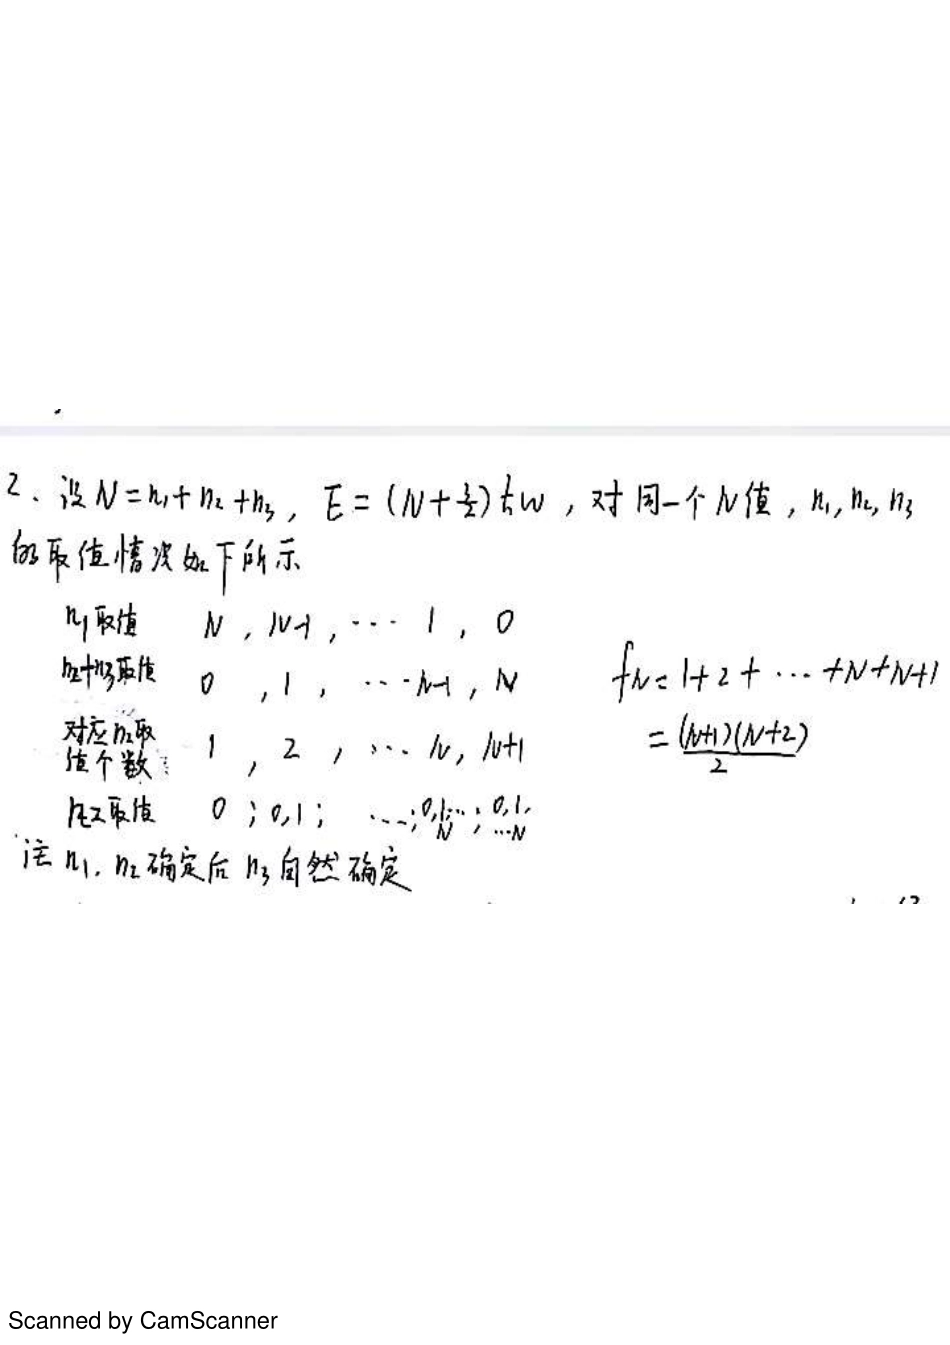 2、设 N=n₁+n₂+n₃, E=(N+3/2)ħω，对同一个N值，n₁,n₂,n₃
的取值情况如下所示
n₁取值 N, N-1, … 1, 0
n₂+n₃取值 0, 1, … N-1, N
对应n₂取
值个数 1, 2, … N, N+1
n₂取值 0; 0,1; …; 0,1,… N; 0,1, …N
f_N=1+2+…+N+N+1
=(N+1)(N+2)/2
注 n₁, n₂确定后 n₃自然确定
Scanned by CamScanner